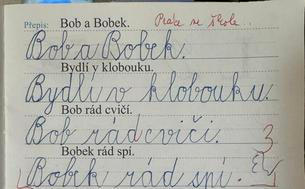 Přepis: Bob a Bobek. Práce ve škole..
Bob a Bobek.
Bydlí v klobouku.
Bydlí v klobouku.
Bob rád cvičí.
Bob rád cvičí. 3
Bobek rád spí.
Bobek rád spí.